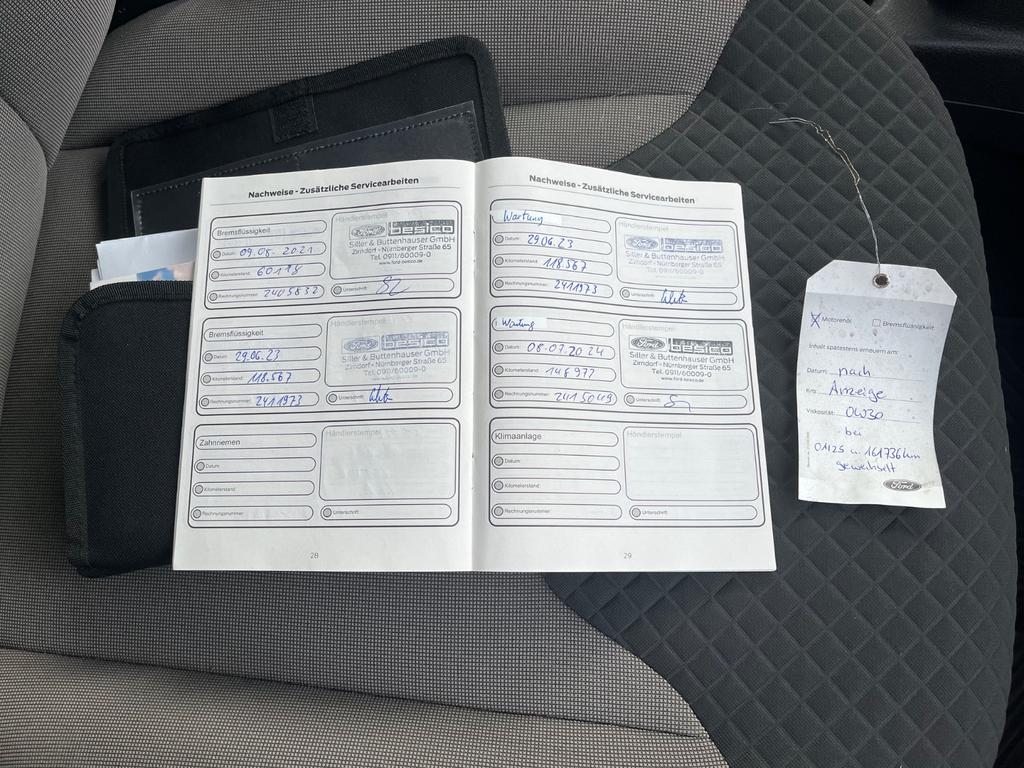 Nachweise - Zusätzliche Servicearbeiten
Bremsflüssigkeit
Datum: 09.08.2021
Kilometerstand: 60118
Rechnungsnummer: 2405832
Händlerstempel
Ford besico
Siller & Buttenhauser GmbH
Zirndorf • Nürnberger Straße 65
Tel. 0911/60009-0
www.ford-besico.de
Unterschrift:
Bremsflüssigkeit
Datum: 29.06.23
Kilometerstand: 118.567
Rechnungsnummer: 2411973
Händlerstempel
Ford besico
Siller & Buttenhauser GmbH
Zirndorf • Nürnberger Straße 65
Tel. 0911/60009-0
www.ford-besico.de
Unterschrift:
Zahnriemen
Datum:
Kilometerstand:
Rechnungsnummer:
Händlerstempel
Unterschrift:
28
Nachweise - Zusätzliche Servicearbeiten
Wartung
Datum: 29.06.23
Kilometerstand: 118.567
Rechnungsnummer: 2411973
Händlerstempel
Ford besico
Siller & Buttenhauser GmbH
Zirndorf • Nürnberger Straße 65
Tel. 0911/60009-0
www.ford-besico.de
Unterschrift:
Wartung
Datum: 08.07.2024
Kilometerstand: 148977
Rechnungsnummer: 2415049
Händlerstempel
Ford besico
Siller & Buttenhauser GmbH
Zirndorf • Nürnberger Straße 65
Tel. 0911/60009-0
www.ford-besico.de
Unterschrift:
Klimaanlage
Datum:
Kilometerstand:
Rechnungsnummer:
Händlerstempel
Unterschrift:
29
Motorenöl Bremsflüssigkeit
Inhalt spätestens erneuern am:
Datum: nach
Km: Anzeige
Viskosität: 0W30
bei
01/25 u. 161736 km
gewechselt
Ford